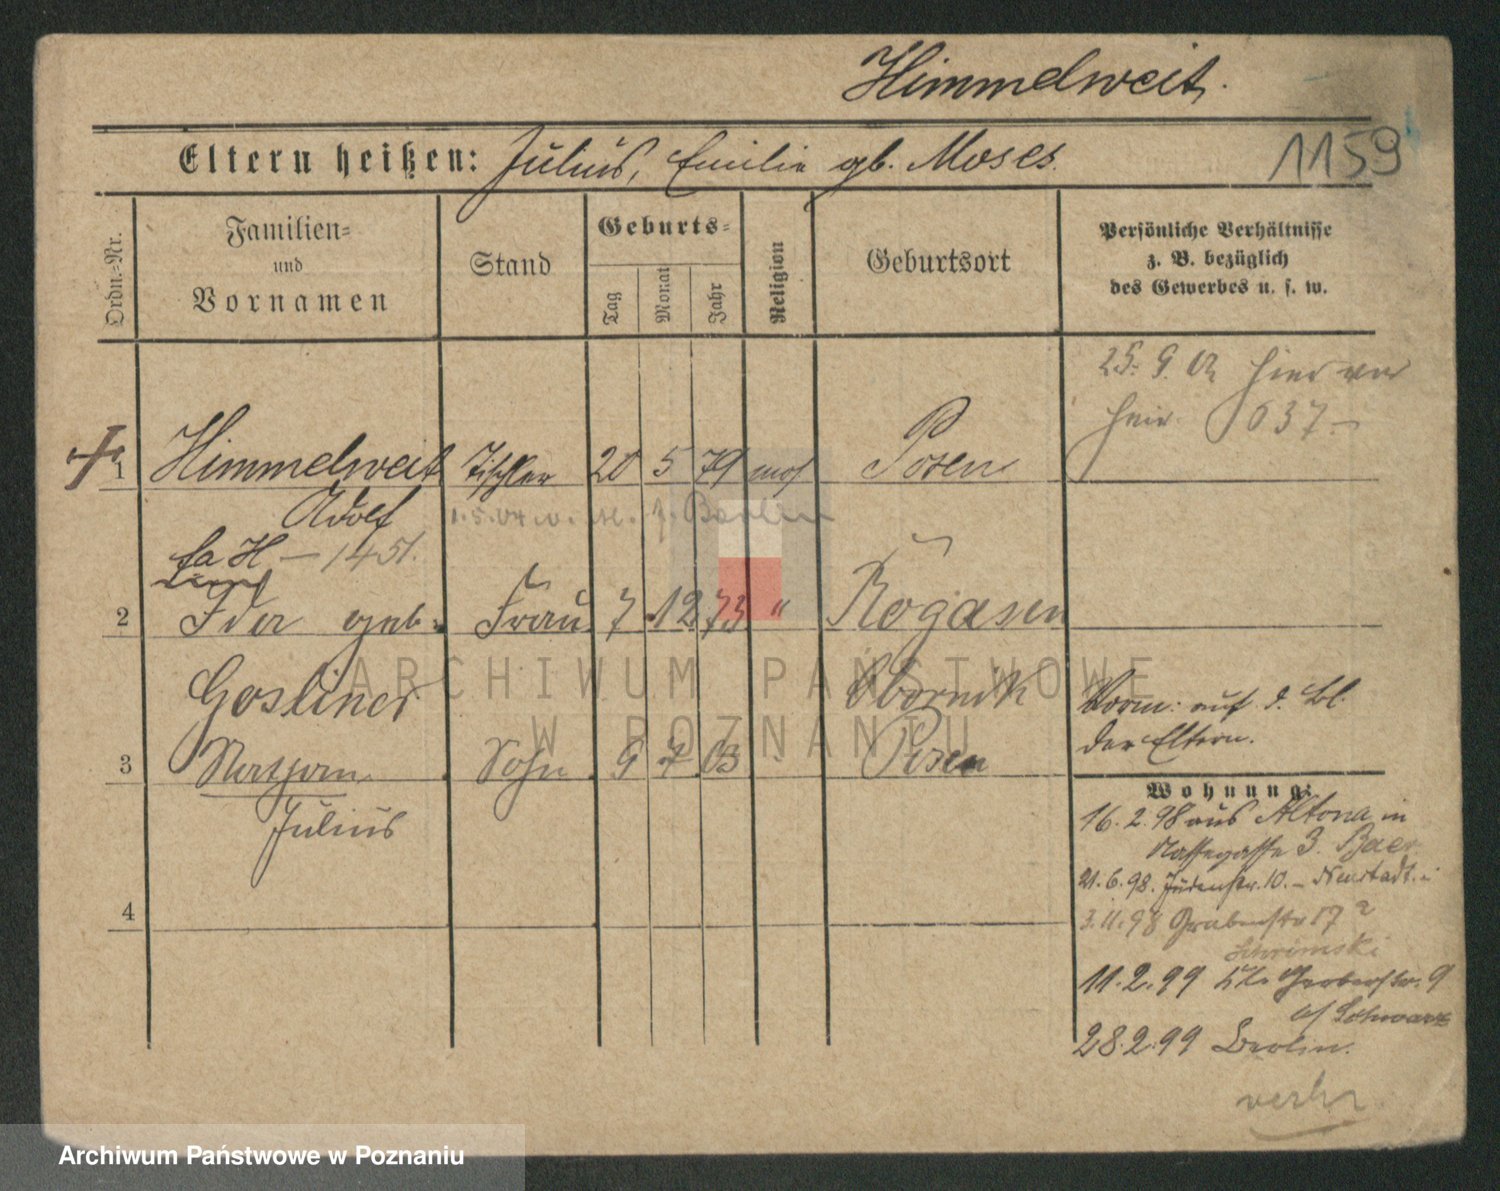 Himmelweit.
Eltern heißen: Julius, Emilie gb. Moses.
1159
Ordn.-Nr.
Familien-
und
Vornamen
Stand
Geburts-
Tag
Monat
Jahr
Religion
Geburtsort
Persönliche Verhältnisse
z. B. bezüglich
des Gewerbes u. s. w.
25. 9. 02 hier ver
heir. 637.-
1 Himmelweit Tischler 20 5 79 mos Posen
Adolf
1.5.04 Berlin
H - 1451.
2 Ida geb. Frau 7 12 73 " Rogasen
Gosliner
Obornik
Vorm: auf d. Bl.
der Eltern.
3 Nathan Sohn 9 7 03 Posen
Julius
4
Wohnung:
16. 2. 98 aus Altona in
Nassegasse 3. Baer
21. 6. 98. Judenstr. 10. - Neustadt
3. 11. 98 Grabenstr 17
Schrimski
11. 2. 99 Kl. Gerberstr. 9
b/ Schwarz
28. 2. 99 Berlin.
verh
ARCHIWUM PAŃSTWOWE
W POZNANIU
Archiwum Państwowe w Poznaniu